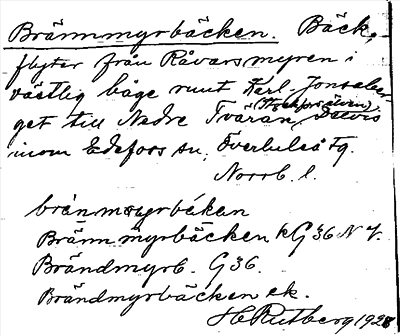 Brännmyrbäcken. Bäck,
flyter från Råvarsmyren i
västlig båge runt Karl-Jonsaber-
get till Nedre Tvärån, delvis
inom Edefors sn, Överluleå tg.
Norrb. l.
brån̄m⁠yrbékan
Brännmyrbäcken kG36 N
Brändmyrb. G36.
Brändmyrbäcken ek.
H Rutberg 1928